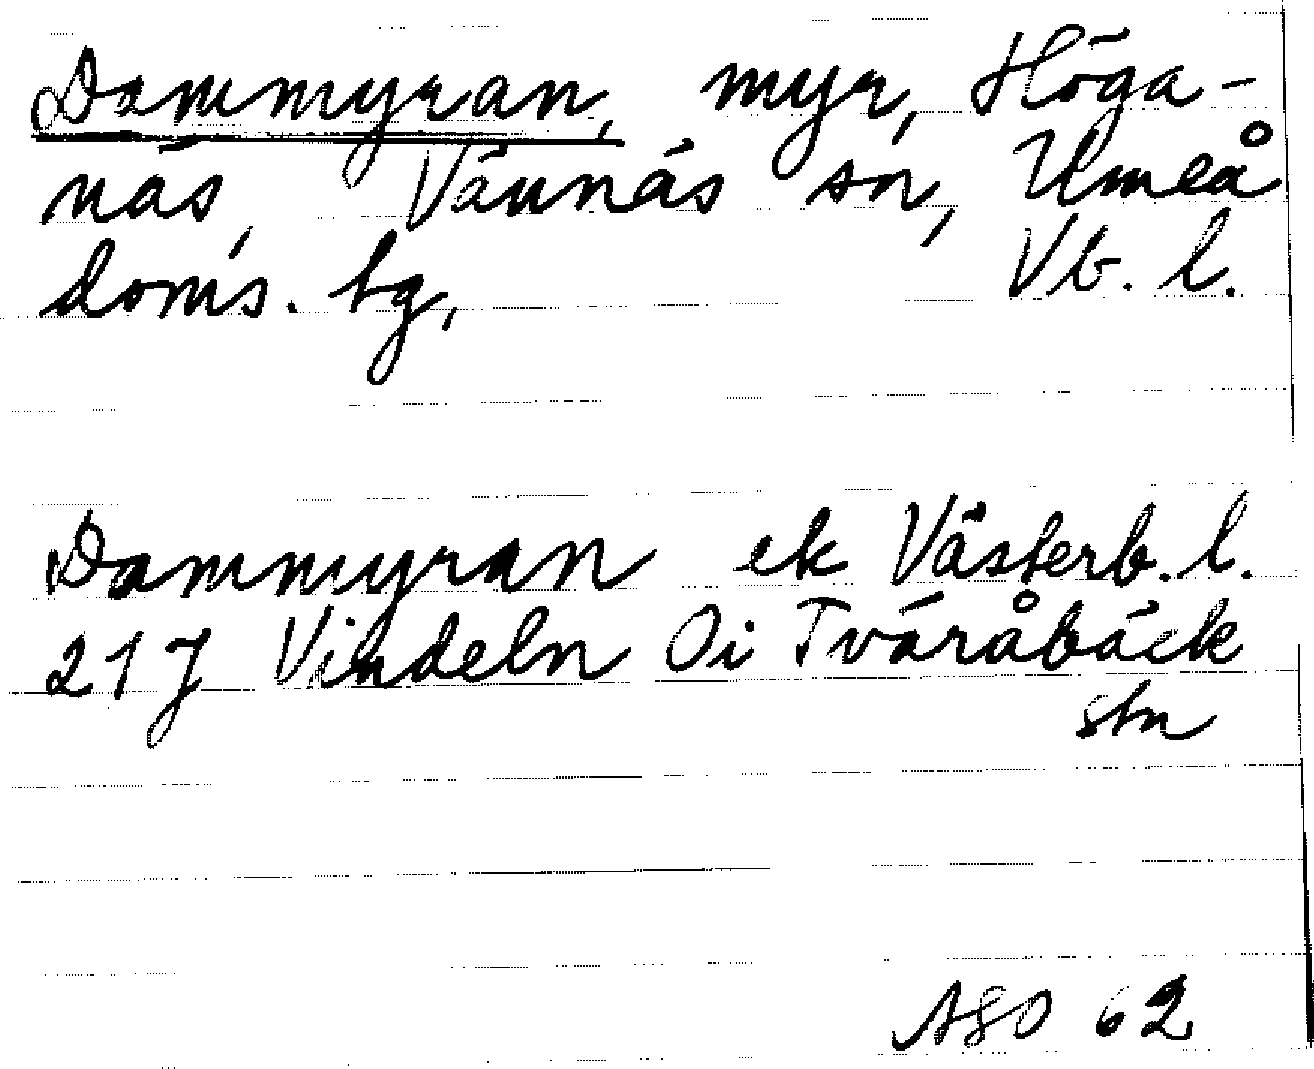 Dammyran, myr, Höga-
näs, Vännäs sn, Umeå
doms. tg, Vb. l.
Dammyran ek Västerb. l.
21 J Vindeln Oi Tväråbäck
stn